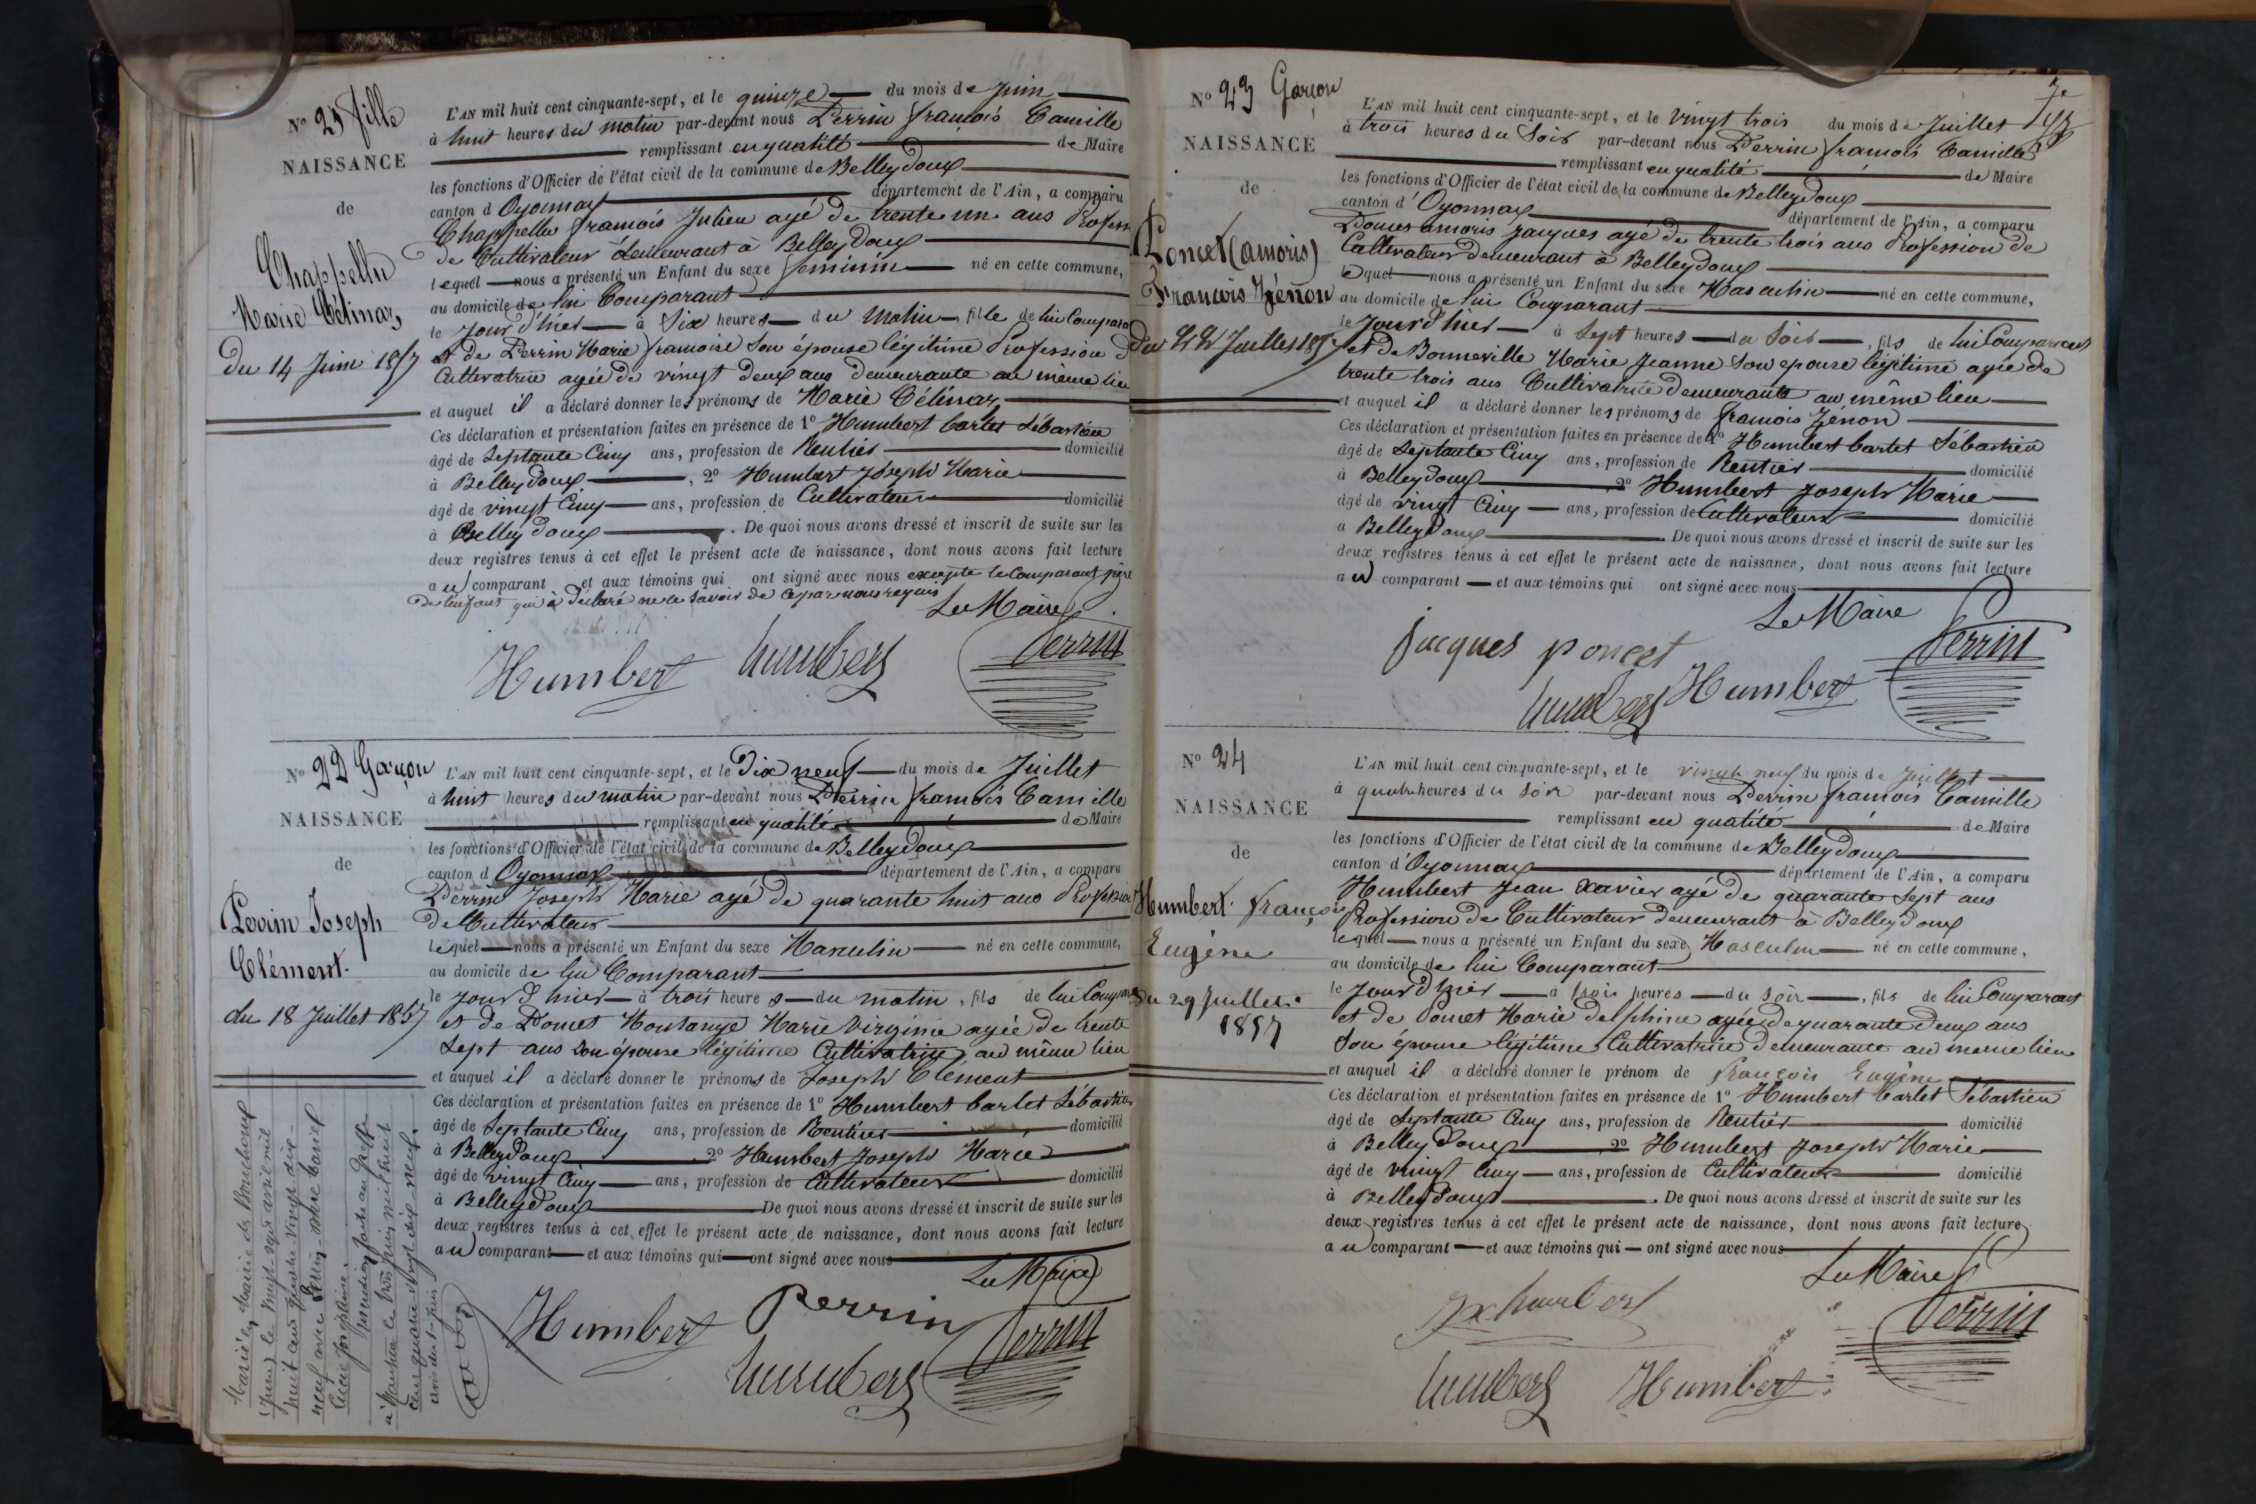 N° 21 fille
NAISSANCE
de
Chappellu
Marie Célinaz
du 14 Juin 1857
L'AN mil huit cent cinquante-sept, et le quinze du mois de Juin
à huit heures du matin par-devant nous Perrin françois Camille
remplissant en qualité de Maire
les fonctions d'Officier de l'état civil de la commune de Belleydoux
canton d Oyonnax département de l'Ain, a comparu
Chappellu françois Julien agé de trente un ans Profession
de Cultivateur demeurant à Belleydoux
lequel nous a présenté un Enfant du sexe feminin né en cette commune,
au domicile de lui Comparant
le Jour d'hier à Six heures du matin, fille de lui Compara
et de Perrin Marie françoise Son épouse légitime Profession d
Cultivatrice agée de vingt deux ans demeurante au même lieu
et auquel il a déclaré donner les prénoms de Marie Célinaz
Ces déclaration et présentation faites en présence de 1° Humbert Carlet Sébastien
âgé de Septante Cinq ans, profession de Rentier domicilié
à Belleydoux, 2° Humbert Joseph Marie
âgé de vingt Cinq ans, profession de Cultivateur domicilié
à Belleydoux. De quoi nous avons dressé et inscrit de suite sur les
deux registres tenus à cet effet le présent acte de naissance, dont nous avons fait lecture
au comparant et aux témoins qui ont signé avec nous excepte le Comparant père
de l'enfant qui a déclaré ne le savoir de ce par nous requis
Le Maire
Humbert Humbert Perrin
N° 22 Garçon
NAISSANCE
de
Perrin Joseph
Clément.
du 18 Juillet 1857
L'AN mil huit cent cinquante-sept, et le Dix neuf du mois de Juillet
à huit heures du matin par-devant nous Perrin françois Camille
remplissant en qualité de Maire
les fonctions d'Officier de l'état civil de la commune de Belleydoux
canton d Oyonnax département de l'Ain, a comparu
Perrin Joseph Marie agé de quarante huit ans Profession
de Cultivateur
lequel nous a présenté un Enfant du sexe Masculin né en cette commune,
au domicile de lui Comparant
le Jour d'hier à trois heures du matin, fils de lui Comp
et de Poncet Montange Marie Virginie agée de trente
Sept ans Son épouse légitime Cultivatrice au même lieu
et auquel il a déclaré donner le prénoms de Joseph Clément
Ces déclaration et présentation faites en présence de 1° Humbert Carlet Sébastien
âgé de Septante Cinq ans, profession de Rentier domicilié
à Belleydoux, 2° Humbert Joseph Marie
âgé de vingt Cinq ans, profession de Cultivateur domicilié
à Belleydoux De quoi nous avons dressé et inscrit de suite sur les
deux registres tenus à cet effet le présent acte de naissance, dont nous avons fait lecture
au comparant et aux témoins qui ont signé avec nous
Le Maire
Humbert Perrin Perrin
Humbert
Marié en Mairie de Bouchoux
(Jura) le vingt sept avril mil
huit cent quatre vingt dix-
neuf avec Perrin
Lucie Joséphine.
N° 23 Garçon
NAISSANCE
de
Poncet (amoris)
François Zénon
du 22 Juillet 1857
L'AN mil huit cent cinquante-sept, et le vingt trois du mois de Juillet
à trois heures du Soir par-devant nous Perrin françois Camille
remplissant en qualité de Maire
les fonctions d'Officier de l'état civil de la commune de Belleydoux
canton d'Oyonnax département de l'Ain, a comparu
Poncet amoris Jacques agé de trente trois ans Profession de
Cultivateur demeurant à Belleydoux
lequel nous a présenté un Enfant du sexe Masculin né en cette commune,
au domicile de lui Comparant
le Jour d'hier à Sept heures du Soir, fils de lui Comparant
et de Bonneville Marie Jeanne Son epouse légitime agée de
trente trois ans Cultivatrice demeurante au même lieu
et auquel il a déclaré donner les prénoms de françois Zénon
Ces déclaration et présentation faites en présence de 1° Humbert Carlet Sébastien
âgé de Septante Cinq ans, profession de Rentier domicilié
à Belleydoux 2° Humbert Joseph Marie
âgé de vingt Cinq ans, profession de Cultivateur domicilié
à Belleydoux De quoi nous avons dressé et inscrit de suite sur les
deux registres tenus à cet effet le présent acte de naissance, dont nous avons fait lecture
au comparant et aux témoins qui ont signé avec nous
Le Maire
jacques poncet Perrin
Humbert Humbert
N° 24
NAISSANCE
de
Humbert françois
Eugène
du 29 Juillet
1857
L'AN mil huit cent cinquante-sept, et le vingt neuf du mois de Juillet
à quatre heures du Soir par-devant nous Perrin françois Camille
remplissant en qualité de Maire
les fonctions d'Officier de l'état civil de la commune de Belleydoux
canton d'Oyonnax département de l'Ain, a comparu
Humbert Jean Xavier agé de quarante Sept ans
Profession de Cultivateur demeurant à Belleydoux
lequel nous a présenté un Enfant du sexe Masculin né en cette commune,
au domicile de lui Comparant
le Jour d'hier à trois heures du Soir, fils de lui Comparant
et de Poncet Marie delphine agée de quarante deux ans
Son épouse légitime Cultivatrice demeurante au meme lieu
et auquel il a déclaré donner le prénom de françois Eugène
Ces déclaration et présentation faites en présence de 1° Humbert Carlet Sébastien
âgé de Septante Cinq ans, profession de Rentier domicilié
à Belleydoux 2° Humbert Joseph Marie
âgé de vingt Cinq ans, profession de Cultivateur domicilié
à Belleydoux. De quoi nous avons dressé et inscrit de suite sur les
deux registres tenus à cet effet le présent acte de naissance, dont nous avons fait lecture
au comparant et aux témoins qui ont signé avec nous
Le Maire
Jx humbert Perrin
Humbert Humbert